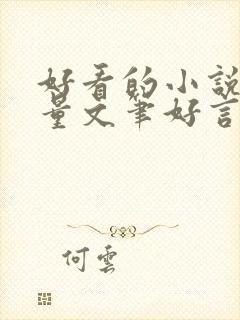 好看的小說
量文筆好言
何雲